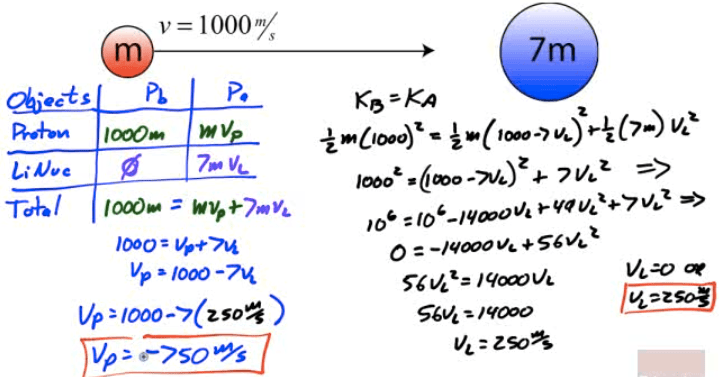 v = 1000 m/s
m
7m
Objects P_b P_a
Proton 1000m mV_p
Li Nuc ∅ 7mV_L
Total 1000m = mV_p + 7mV_L
1000 = V_p + 7V_L
V_p = 1000 - 7V_L
V_p = 1000 - 7(250 m/s)
V_p = -750 m/s
K_B = K_A
½m(1000)² = ½m(1000 - 7V_L)² + ½(7m)V_L²
1000² = (1000 - 7V_L)² + 7V_L² =>
10⁶ = 10⁶ - 14000V_L + 49V_L² + 7V_L² =>
0 = -14000V_L + 56V_L²
56V_L² = 14000V_L
56V_L = 14000
V_L = 250 m/s
V_L = 0 or
V_L = 250 m/s